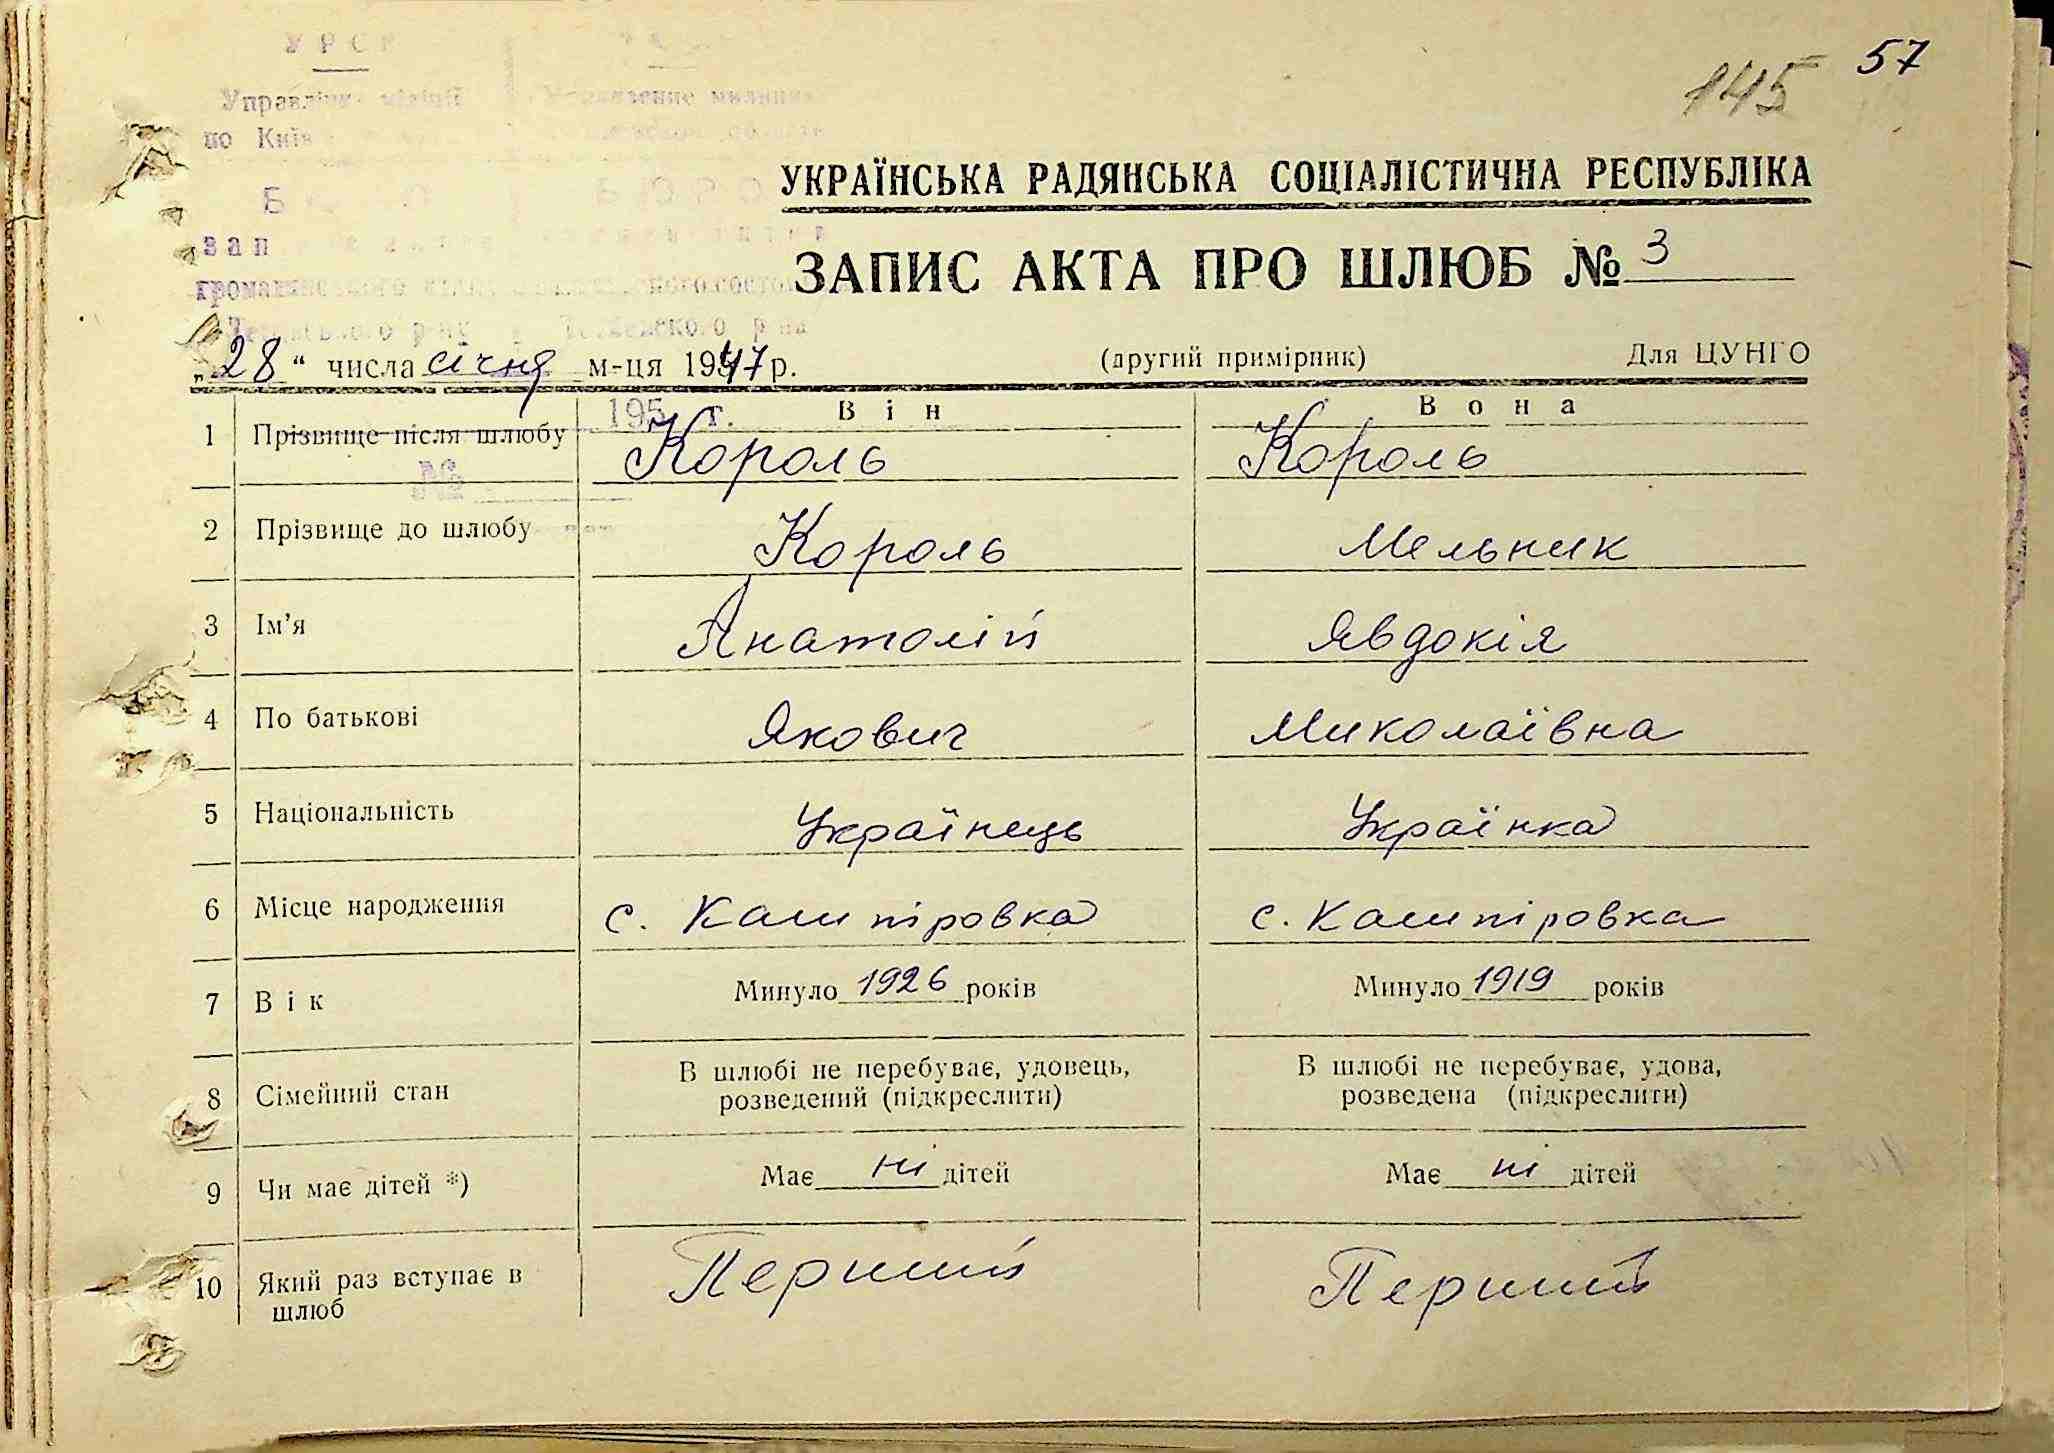 57
145
УРСР
Управління міліції Управление милиции
по Київ
БЮРО
УКРАЇНСЬКА РАДЯНСЬКА СОЦІАЛІСТИЧНА РЕСПУБЛІКА
ЗАПИС АКТА ПРО ШЛЮБ № 3
„28“ числа січня м-ця 1947 р. (другий примірник) Для ЦУНГО
195 г.
Він Вона
1 Прізвище після шлюбу Король Король
№
2 Прізвище до шлюбу Король Мельник
3 Ім’я Анатолій Явдокія
4 По батькові Якович Миколаївна
5 Національність Українець Українка
6 Місце народження с. Кашпіровка с. Кашпіровка
7 Вік Минуло 1926 років Минуло 1919 років
8 Сімейний стан В шлюбі не перебуває, удовець, розведений (підкреслити) В шлюбі не перебуває, удова, розведена (підкреслити)
9 Чи має дітей *) Має ні дітей Має ні дітей
10 Який раз вступає в шлюб Перший Перший